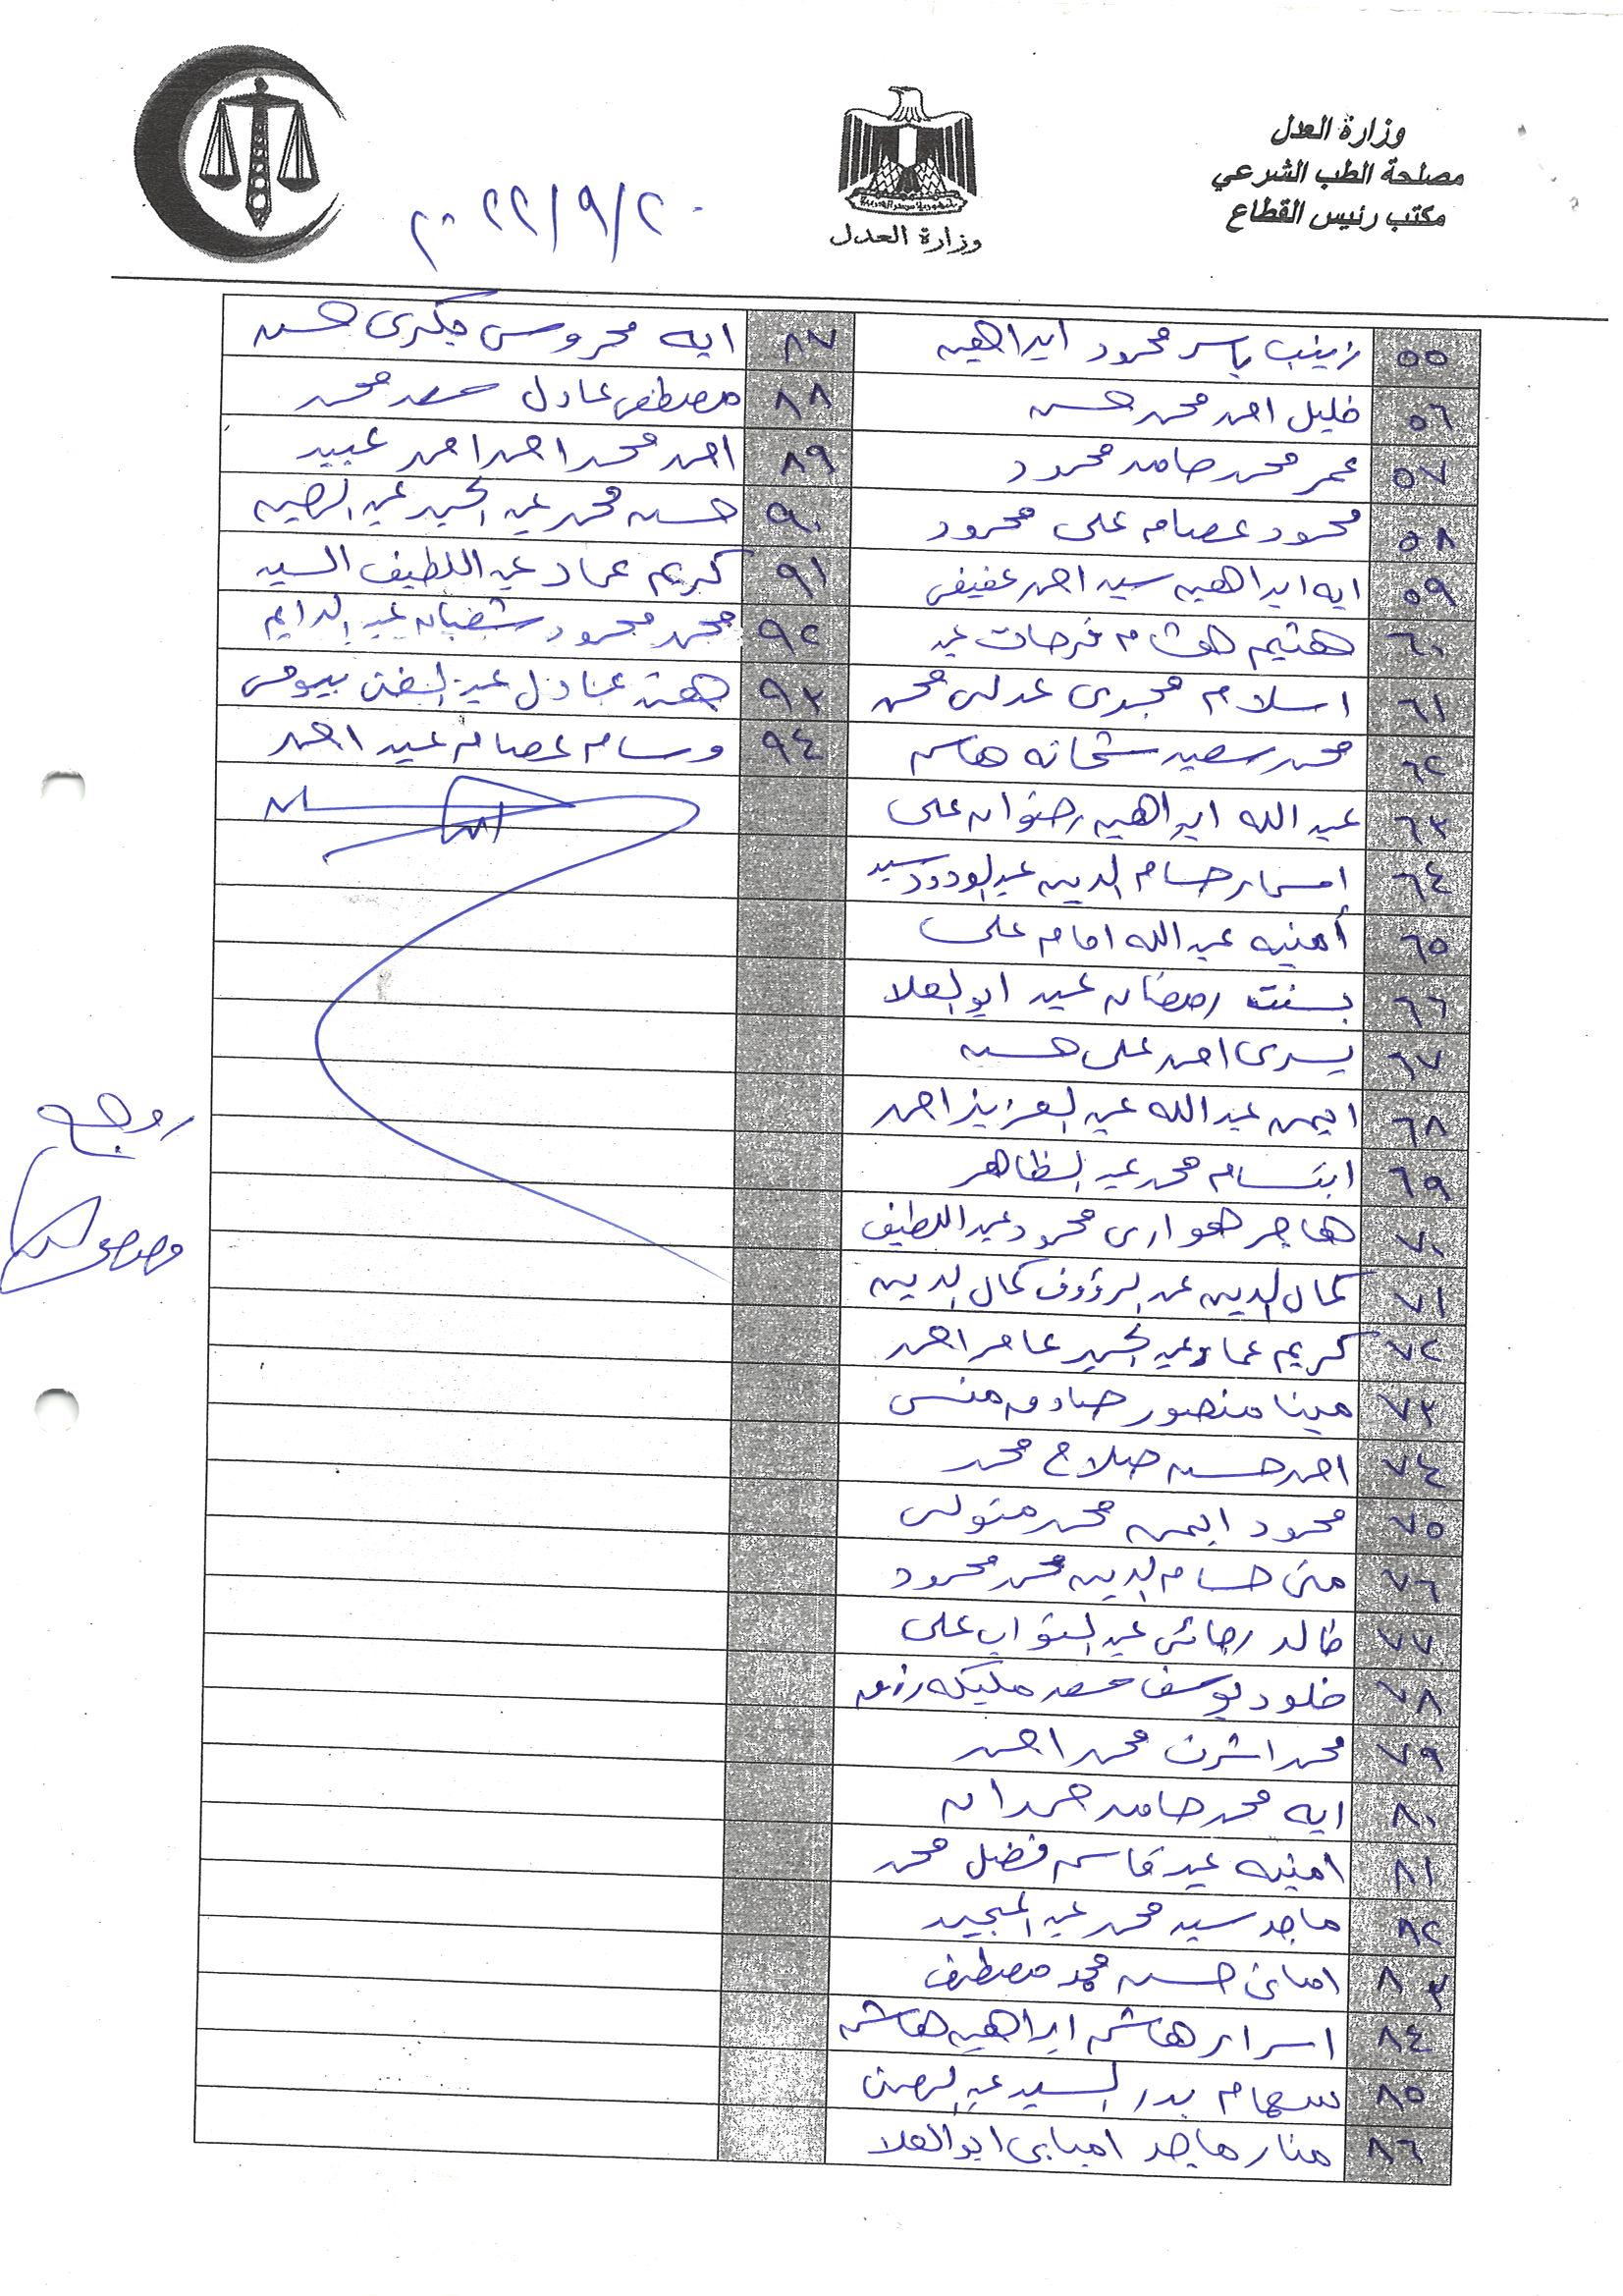 وزارة العدل
مصلحة الطب الشرعي
مكتب رئيس القطاع
وزارة العدل
٢٠٢٢/٩/٢٠
٥٥ زينب ياسر محمود ابراهيم
٥٦ خليل احمد محمد حسن
٥٧ عمر محمد حامد محمود
٥٨ محمود عصام على محمود
٥٩ ايه ابراهيم سيد احمد عفيفى
٦٠ هشام فرحات عيد
٦١ اسلام مجدى عدلى محمد
٦٢ محمد سعيد شحاته هاشم
٦٣ عبد الله ابراهيم رضوان على
٦٤ حسام الدين عبد الودود سيد
٦٥ أمنيه عبد الله امام على
٦٦ بسنت رمضان عيد ابو العلا
٦٧ يسرى احمد على حسن
٦٨ ايمن عبد الله عبد العزيز احمد
٦٩ ابتسام محمد عبد الظاهر
٧٠ هاجر هوارى محمود عبد اللطيف
٧١ كمال الدين عبد الرؤوف كمال الدين
٧٢ كريم عماد عبد الحميد عامر احمد
٧٣ مينا منصور صادق منسى
٧٤ احمد حسن صلاح محمد
٧٥ محمود ايمن محمد متولى
٧٦ منى حسام الدين محمد محمود
٧٧ خالد رجائى عبد التواب على
٧٨ خلود يوسف سعد مليكه رزق
٧٩ محمد اشرف محمد احمد
٨٠ ايه محمد حامد حمدان
٨١ امنيه عيد قاسم فضل محمد
٨٢ ماجد سيد محمد عبد المجيد
٨٣ امانى حسن محمد مصطفى
٨٤ اسراء هاشم ابراهيم هاشم
٨٥ سهام بدر السيد عبد
٨٦ منار ماجد امبابى ابو العلا
٨٧ ايه محروس حسن
٨٨ مصطفى عادل سعد محمد
٨٩ احمد محمد احمد احمد عبيد
٩٠ حسن محمد عبد الحميد عبد
٩١ كريم عماد عبد اللطيف السيد
٩٢ محمد محمود شعبان عبد الدايم
٩٣ عادل عبد الغنى بيومى
٩٤ وسام عصام عيد احمد
روجع